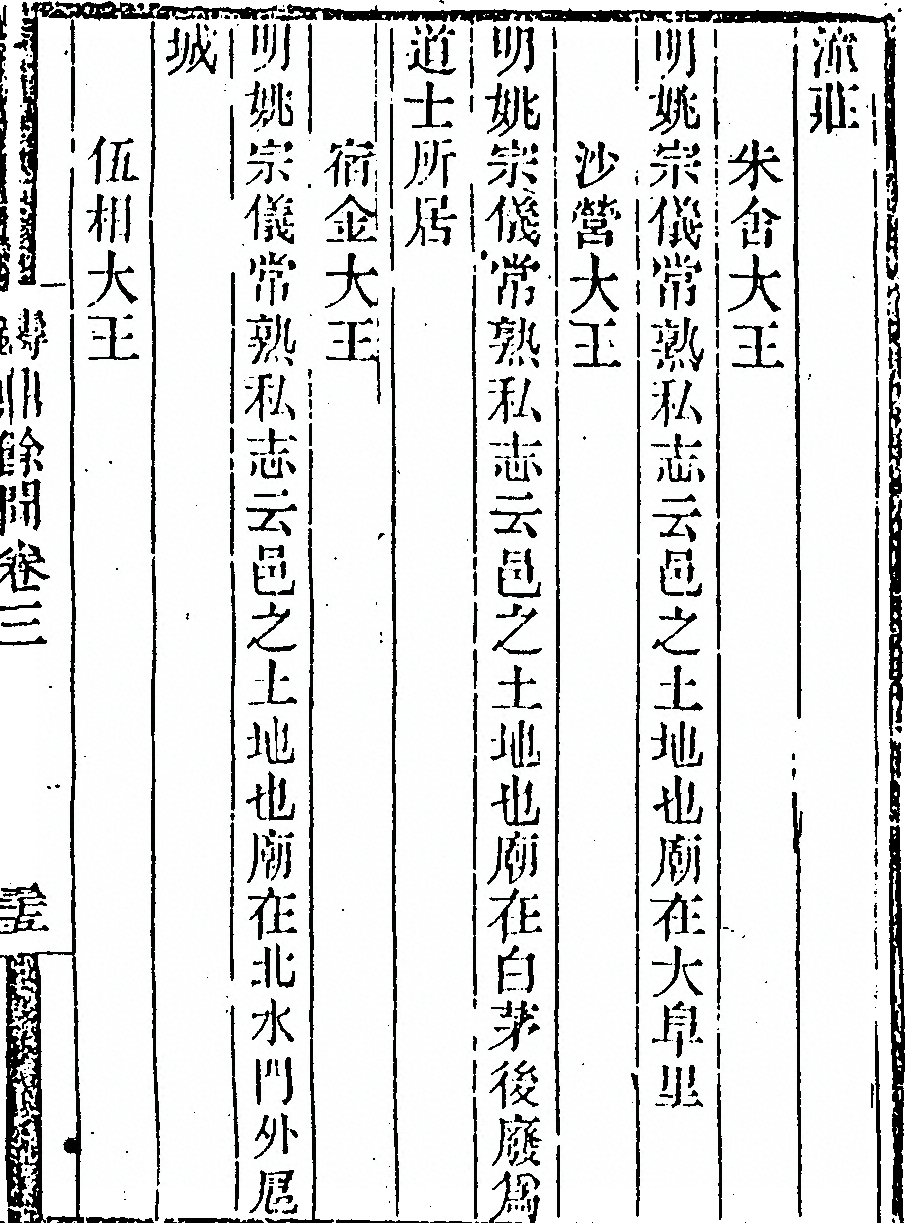 流莊
朱舍大王
明姚宗儀常熟私志云邑之土地也廟在大阜里
沙營大王
明姚宗儀常熟私志云邑之土地也廟在白茅後廢為
道士所居
宿金大王
明姚宗儀常熟私志云邑之土地也廟在北水門外
城
伍相大王
餘聞卷三